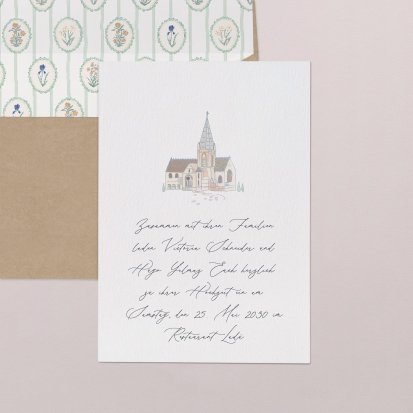 Zusammen mit ihren Familien
laden Victoria Schneider und
Hugo Yilmaz Euch herzlich
zu ihrer Hochzeit ein am
Samstag, den 25 Mai 2030 im
Restaurant Lede